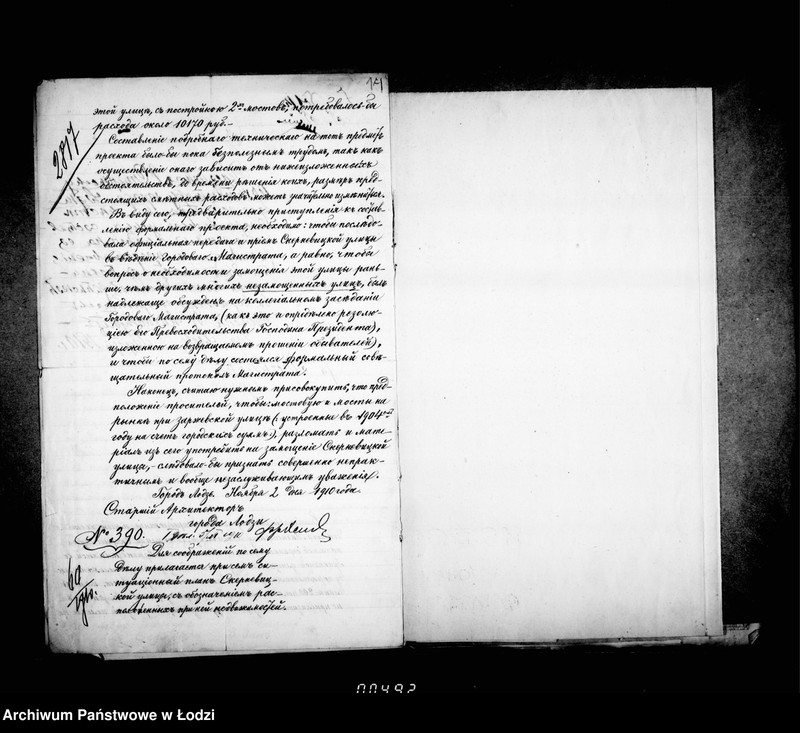 этой улицѣ, съ постройкою 2хъ мостовъ, потребовалось-бы
расхода около 10170 руб.-
2817
Составленіе подробнаго техническаго на тотъ предметъ
проекта было-бы пока безполезнымъ трудомъ, такъ какъ
осуществленіе онаго зависитъ отъ нижеизложенныхъ
обстоятельствъ, до времени рѣшенія коихъ, размѣръ пред-
стоящихъ смѣтныхъ расходовъ можетъ значительно измѣниться.
Въ виду сего, предварительно приступленія къ состав-
ленію формальнаго проекта, необходимо: чтобы послѣдо-
вала оффиціальная передача и пріемъ Скерневицкой улицы
въ вѣдѣніе Городоваго Магистрата, а равно, чтобы
вопросъ о необходимости замощенія этой улицы рань-
ше, чѣмъ другихъ многихъ незамощенныхъ улицъ, былъ
надлежаще обсужденъ на коллегіальномъ засѣданіи
Городоваго Магистрата, (какъ это и опредѣлено резолю-
ціею Его Превосходительства Господина Президента),
изложенною на возвращаемомъ прошеніи обывателей),
и чтобы по сему дѣлу состоялся формальный совѣ-
щательный протоколъ Магистрата.
Наконецъ, считаю нужнымъ присовокупить, что пред-
положеніе просителей, чтобы: мостовую и мосты на
рынкѣ при заржевской улицѣ (устроенные въ 1904 мъ
году на счетъ городскихъ суммъ), разломать и мате-
ріалъ изъ сего употребить на замощеніе Скерневицкой
улицы,- слѣдовало-бы признать совершенно непрак-
тичнымъ и вообще незаслуживающимъ уваженія.
Городъ Лодзь. Ноября 2 дня 1910 года.
Старшій Архитекторъ
города Лодзи
№ 390.
Для соображеній по сему
дѣлу прилагается при семъ си-
туаціонный планъ Скерневиц-
кой улицы, съ обозначеніемъ рас-
положенныхъ при ней недвижимостей.
00492
Archiwum Państwowe w Łodzi